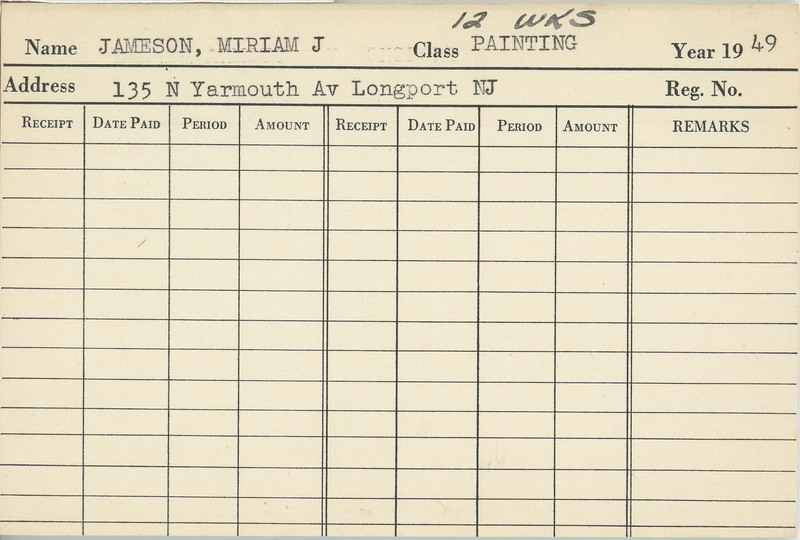 12 WKS
Name JAMESON, MIRIAM J Class PAINTING Year 19 49
Address 135 N Yarmouth Av Longport NJ Reg. No.
RECEIPT DATE PAID PERIOD AMOUNT RECEIPT DATE PAID PERIOD AMOUNT REMARKS